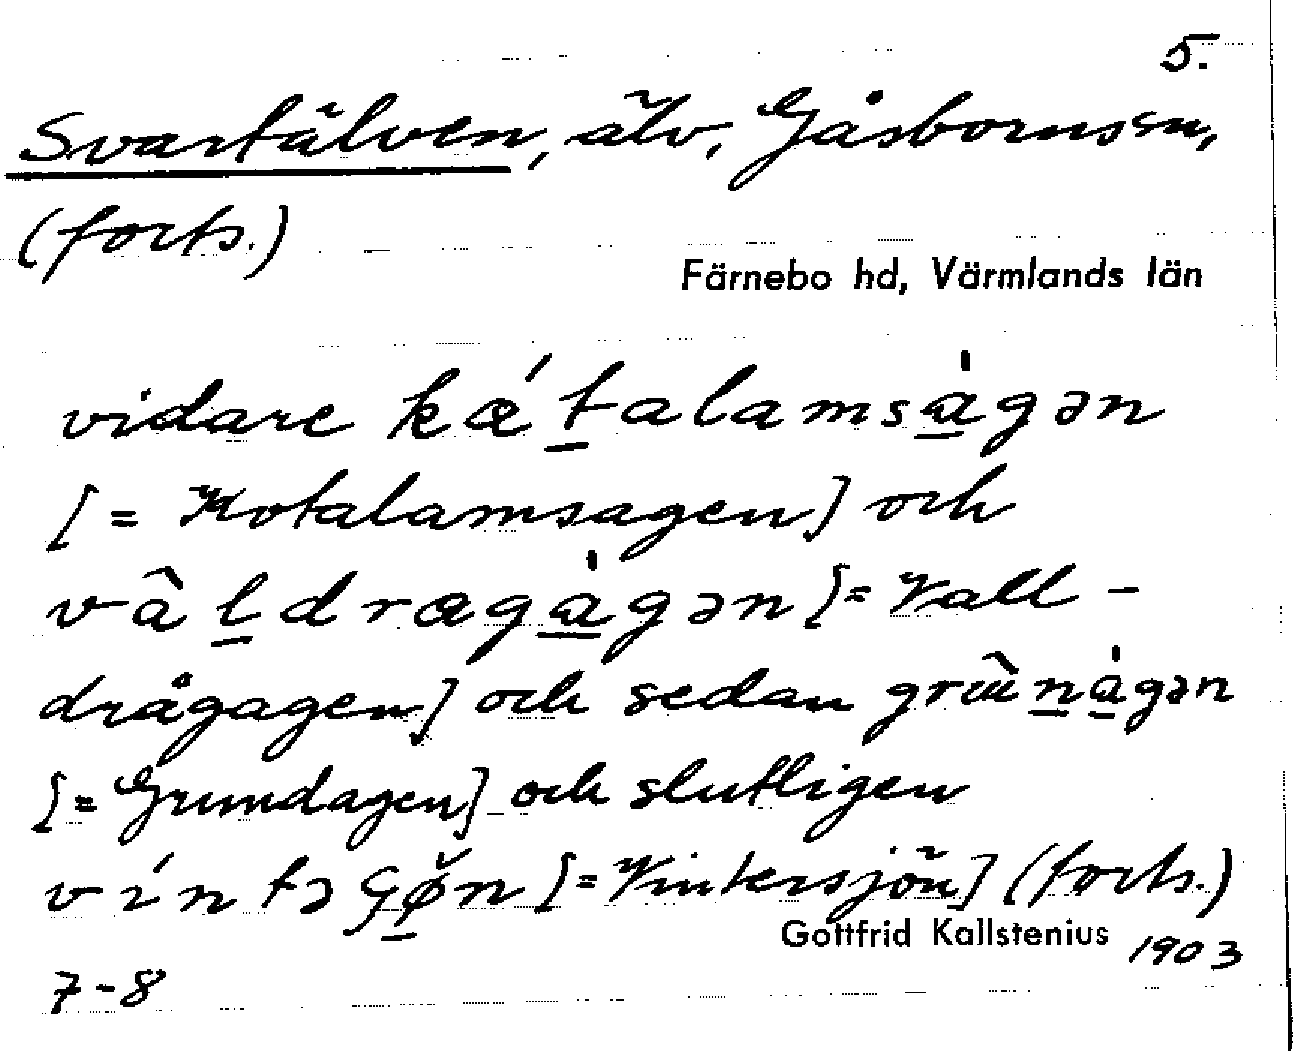 5.
Svartälven, älv, Gåsborns sn,
(forts.)
Färnebo hd, Värmlands län
vidare kǽt̲alamsa̲̍gən
[= Kotalamsagen] och
vâl̲dræga̲̍gən [= Vall-
drågagen] och sedan grɯ̂n̲a̲̍gən
[= Grundagen] och slutligen
víntəʂø̲̆n [= Vintersjön] (forts.)
Gottfrid Kallstenius 1903
7-8